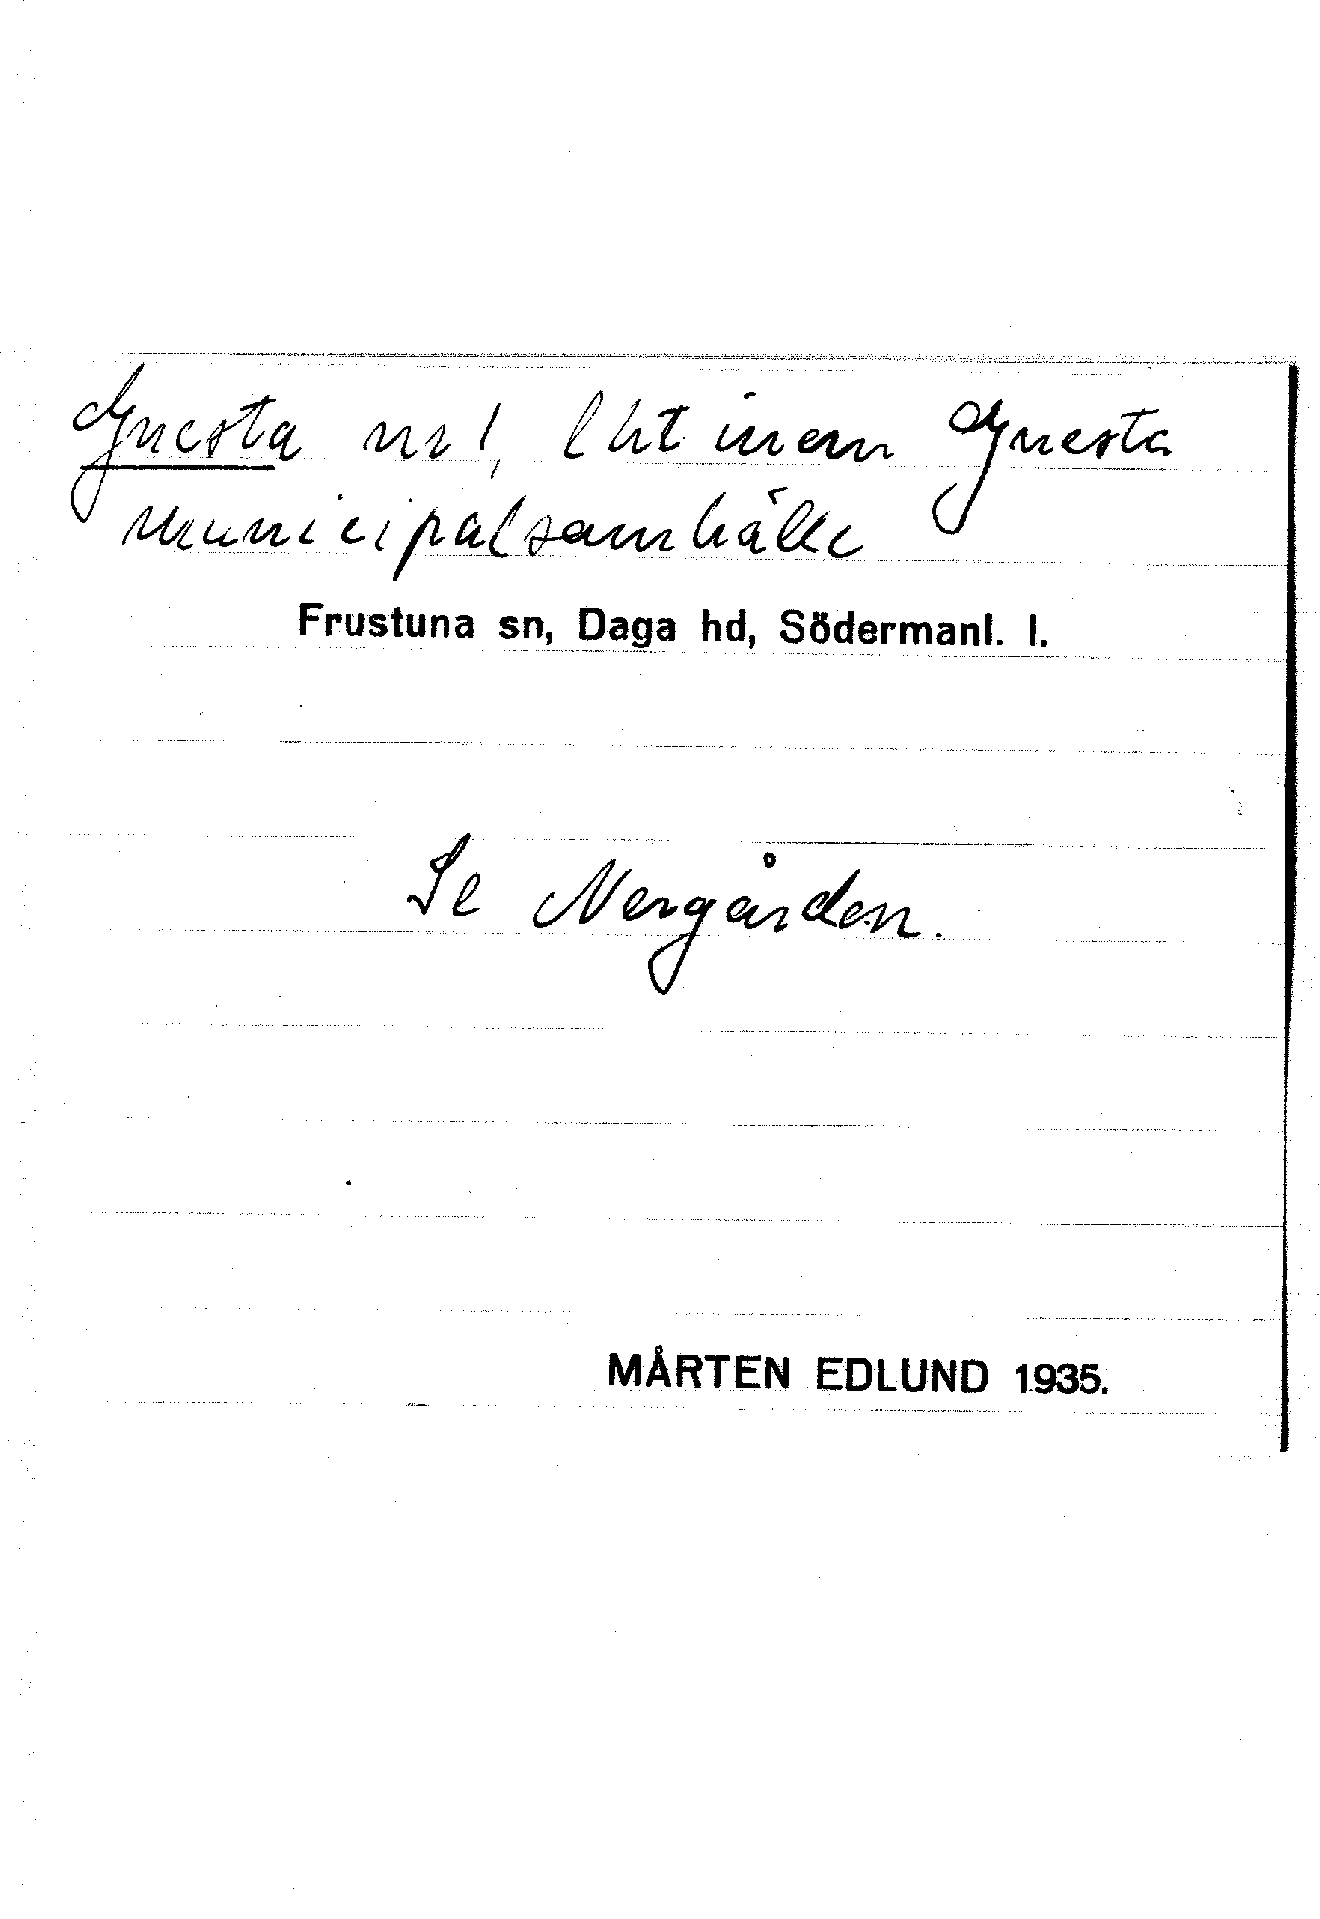 Gnesta nr 1, lht inom Gnesta
municipalsamhälle
Frustuna sn, Daga hd, Södermanl. l.
Se Nergården.
MÅRTEN EDLUND 1935.